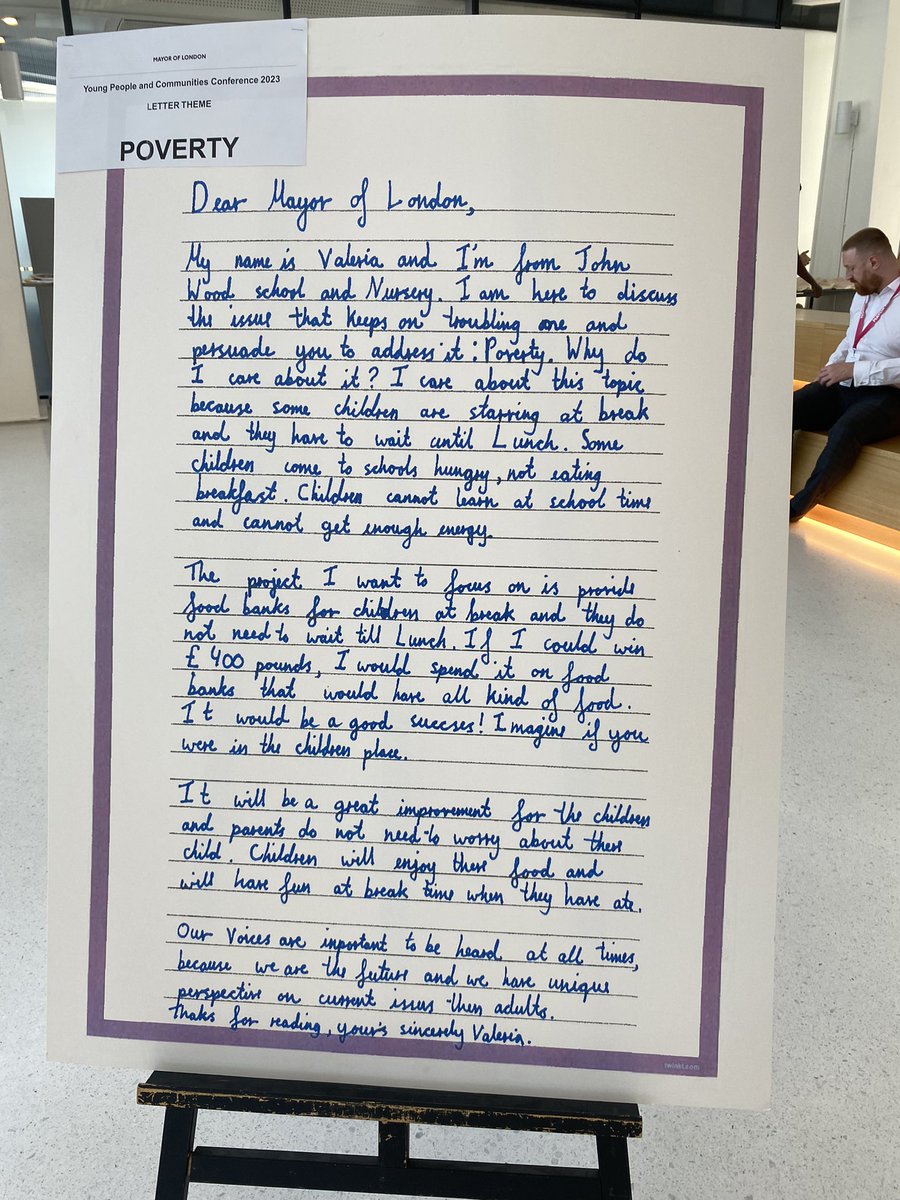 MAYOR OF LONDON
Young People and Communities Conference 2023
LETTER THEME
POVERTY
Dear Mayor of London,
My name is Valeria and I'm from John
Wood school and Nursery. I am here to discuss
the issue that keeps on troubling one and
persuade you to address it : Poverty. Why do
I care about it? I care about this topic
because some children are starring at break
and they have to wait until Lunch. Some
children come to schools hungry, not eating
breakfast. Children cannot learn at school time
and cannot get enough energy.
The project I want to focus on is provide
food banks for children at break and they do
not need to wait till Lunch. If I could win
£ 400 pounds, I would spend it on food
banks that would have all kind of food.
It would be a good succses! Imagine if you
were in the children place.
It will be a great improvement for the children
and parents do not need to worry about there
child. Children will enjoy there food and
will have fun at break time when they have ate.
Our Voices are inportant to be heard at all times,
because we are the future and we have unique
perspective on current issus then adults.
thaks for reading, your's sincerely Valeria.
twinkl.com